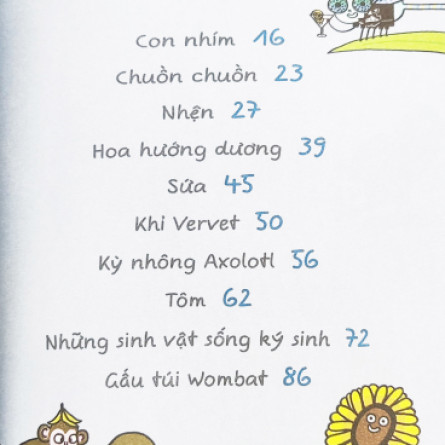 Con nhím 16
Chuồn chuồn 23
Nhện 27
Hoa hướng dương 39
Sứa 45
Khỉ Vervet 50
Kỳ nhông Axolotl 56
Tôm 62
Những sinh vật sống ký sinh 72
Gấu túi Wombat 86